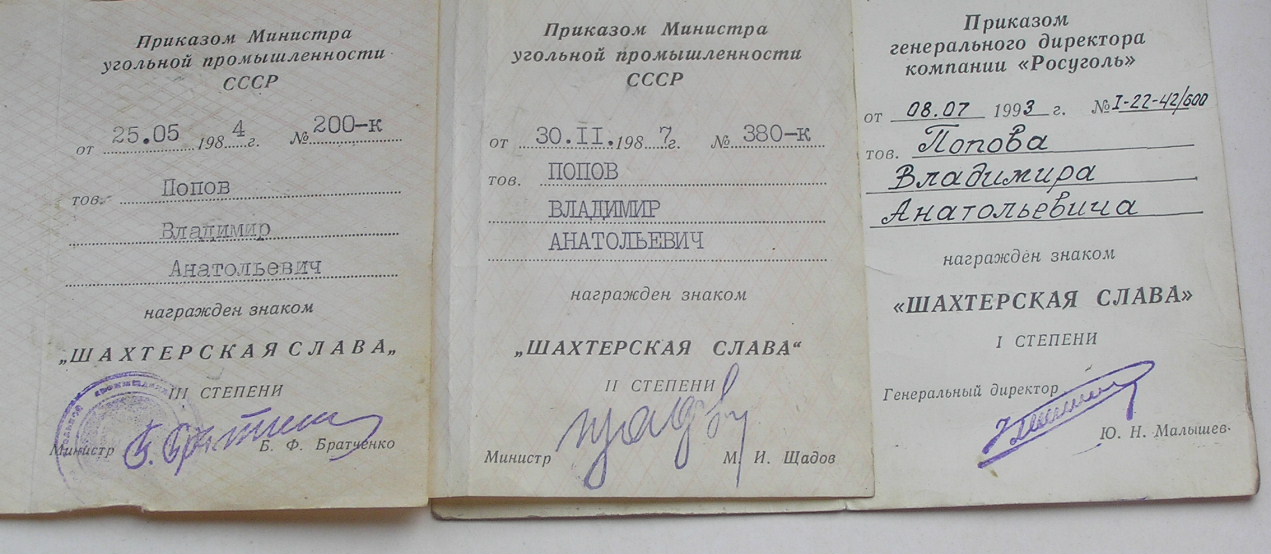 Приказом Министра
угольной промышленности
СССР
от 25.05 1984г. № 200-к
тов. Попов
Владимир
Анатольевич
награжден знаком
„ШАХТЕРСКАЯ СЛАВА„
III СТЕПЕНИ
Министр Б. Ф. Братченко
Приказом Министра
угольной промышленности
СССР
от 30.II.1987г. № 380-к
тов. ПОПОВ
ВЛАДИМИР
АНАТОЛЬЕВИЧ
награжден знаком
„ШАХТЕРСКАЯ СЛАВА“
II СТЕПЕНИ
Министр М. И. Щадов
Приказом
генерального директора
компании «Росуголь»
от 08.07 1993 г. № I-22-42/600
тов. Попова
Владимира
Анатольевича
награждён знаком
«ШАХТЕРСКАЯ СЛАВА»
I СТЕПЕНИ
Генеральный директор
Ю. Н. Малышев